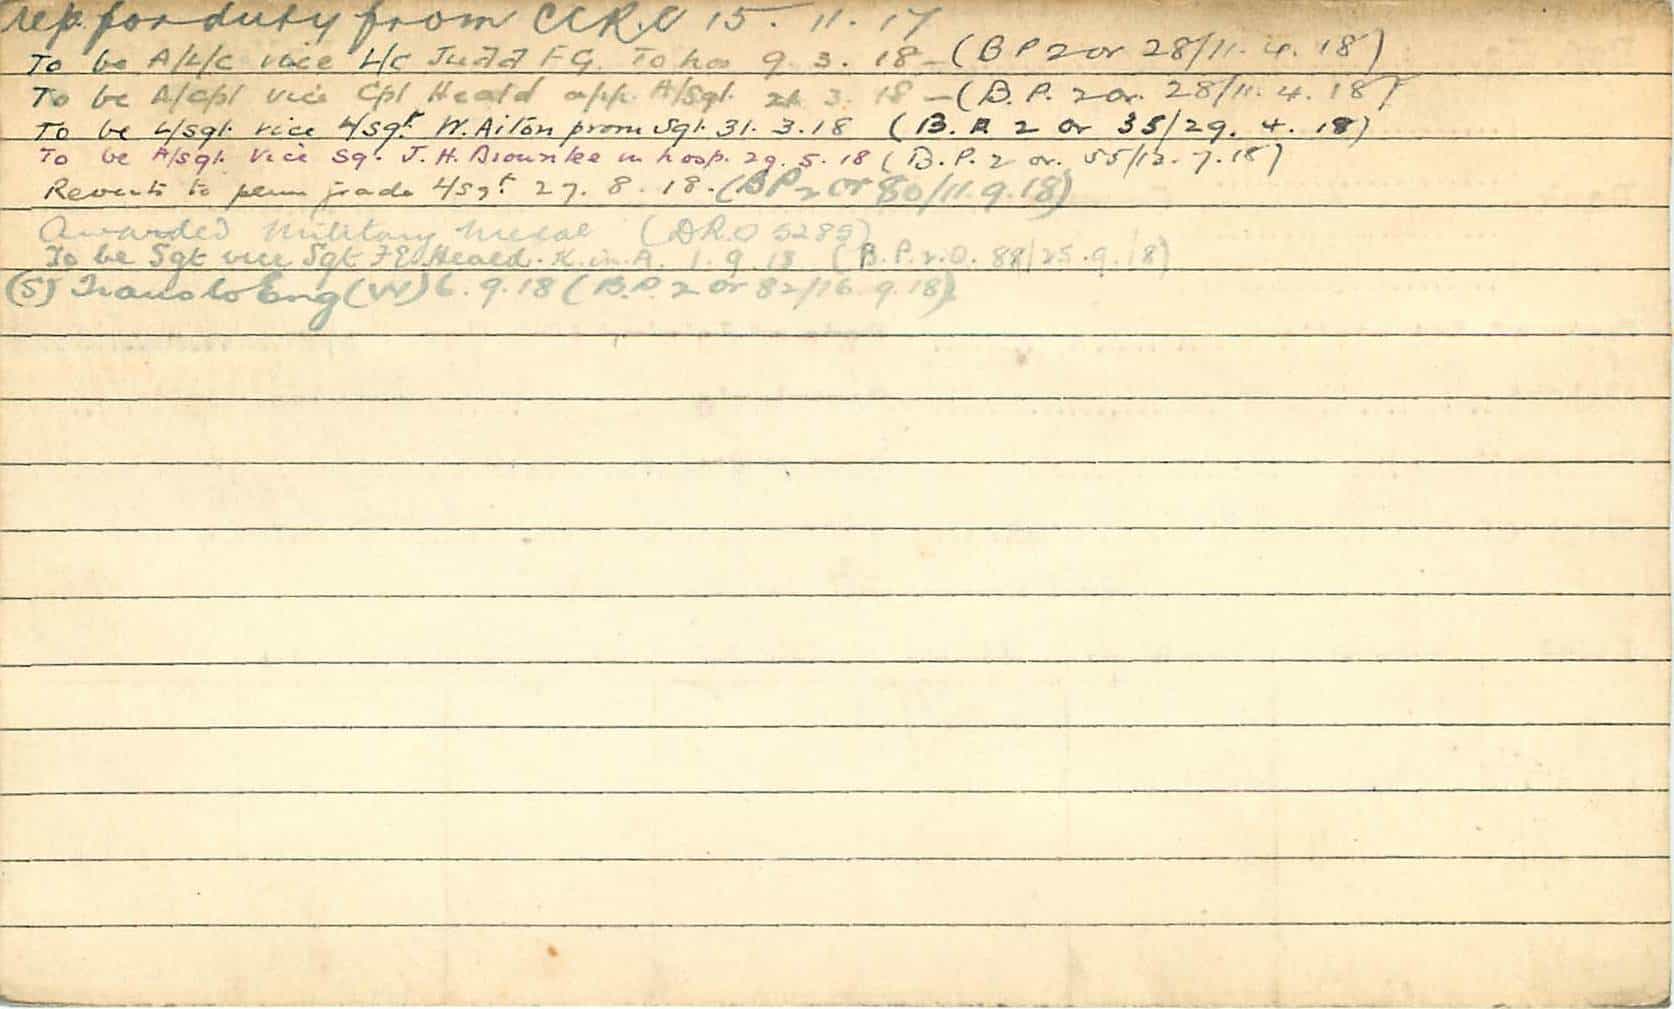 rep. for duty from CCRC 15. 11. 17
To be A/L/C vice L/C Judd F G. To hos 9. 3. 18 - (B P 2 or 28/11. 4. 18)
To be A/Cpl vice Cpl Heald app. A/Sgt. 21. 3. 18 - (B. P. 2 or. 28/11. 4. 18)
To be L/Sgt. vice L/Sgt W. Aiton prom Sgt. 31. 3. 18 (B. P. 2 or 35/29. 4. 18)
To be A/Sgt. vice Sg. J. H. Brounlee in hosp. 29. 5. 18 (B. P. 2 or. 55/12. 7. 18)
Reverts to perm grade L/Sgt 27. 8. 18. (BP 2 or 80/11. 9. 18)
Awarded Military Medal (DRO 5285)
To be Sgt vice Sgt F E. Heald. K. in. A. 1. 9. 18 (B. P. 2. O. 88/25. 9. 18)
(S) Trans to Eng (W) 6. 9. 18 (B. P. 2 or 82/16. 9. 18)